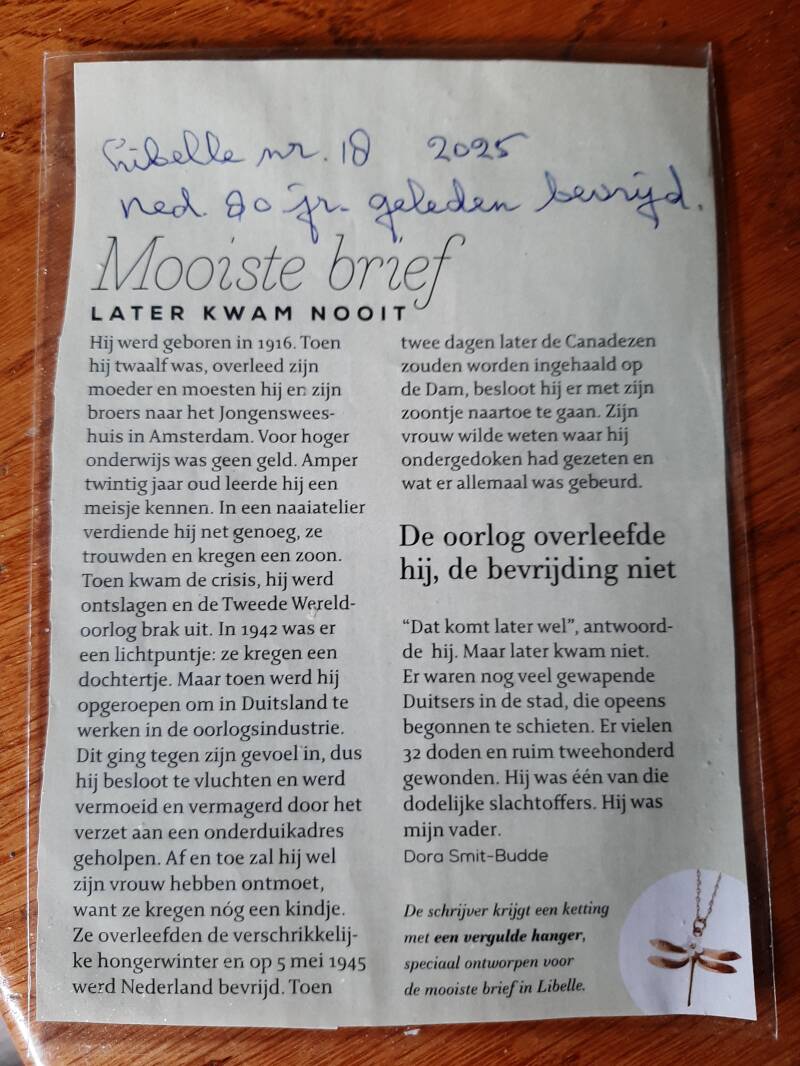 Libelle nr. 18 2025
Ned. 80 jr. geleden bevrijd.
Mooiste brief
LATER KWAM NOOIT
Hij werd geboren in 1916. Toen
hij twaalf was, overleed zijn
moeder en moesten hij en zijn
broers naar het Jongenswees-
huis in Amsterdam. Voor hoger
onderwijs was geen geld. Amper
twintig jaar oud leerde hij een
meisje kennen. In een naaiatelier
verdiende hij net genoeg, ze
trouwden en kregen een zoon.
Toen kwam de crisis, hij werd
ontslagen en de Tweede Wereld-
oorlog brak uit. In 1942 was er
een lichtpuntje: ze kregen een
dochtertje. Maar toen werd hij
opgeroepen om in Duitsland te
werken in de oorlogsindustrie.
Dit ging tegen zijn gevoel in, dus
hij besloot te vluchten en werd
vermoeid en vermagerd door het
verzet aan een onderduikadres
geholpen. Af en toe zal hij wel
zijn vrouw hebben ontmoet,
want ze kregen nóg een kindje.
Ze overleefden de verschrikkelij-
ke hongerwinter en op 5 mei 1945
werd Nederland bevrijd. Toen
twee dagen later de Canadezen
zouden worden ingehaald op
de Dam, besloot hij er met zijn
zoontje naartoe te gaan. Zijn
vrouw wilde weten waar hij
ondergedoken had gezeten en
wat er allemaal was gebeurd.
De oorlog overleefde
hij, de bevrijding niet
“Dat komt later wel”, antwoord-
de hij. Maar later kwam niet.
Er waren nog veel gewapende
Duitsers in de stad, die opeens
begonnen te schieten. Er vielen
32 doden en ruim tweehonderd
gewonden. Hij was één van die
dodelijke slachtoffers. Hij was
mijn vader.
Dora Smit-Budde
De schrijver krijgt een ketting
met een vergulde hanger,
speciaal ontworpen voor
de mooiste brief in Libelle.